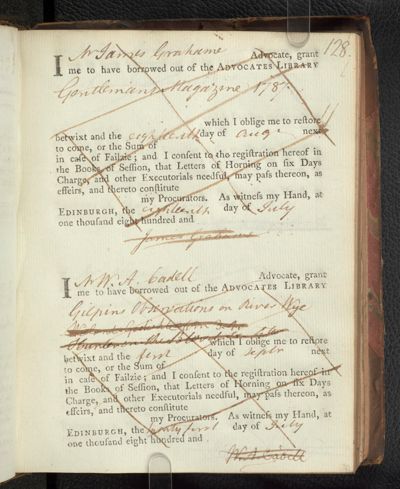 128.
I Mr James Grahame Advocate, grant
me to have borrowed out of the ADVOCATES LIBRARY
Gentleman's Magazine 1787.
which I oblige me to restore
betwixt and the eighteenth day of Aug: next
to come, or the Sum of
in case of Failzie; and I consent to the registration hereof in
the Books of Session, that Letters of Horning on six Days
Charge, and other Executorials needful, may pass thereon, as
effeirs, and thereto constitute
my Procurators. As witness my Hand, at
EDINBURGH, the eighteenth day of July
one thousand eight hundred and
James Grahame
I Mr W. A. Cadell Advocate, grant
me to have borrowed out of the ADVOCATES LIBRARY
Gilpins Observations on River Wye
which I oblige me to restore
betwixt and the first day of Septr next
to come, or the Sum of
in case of Failzie; and I consent to the registration hereof in
the Books of Session, that Letters of Horning on six Days
Charge, and other Executorials needful, may pass thereon, as
effeirs, and thereto constitute
my Procurators. As witness my Hand, at
EDINBURGH, the twenty first day of July
one thousand eight hundred and
W. A. Cadell